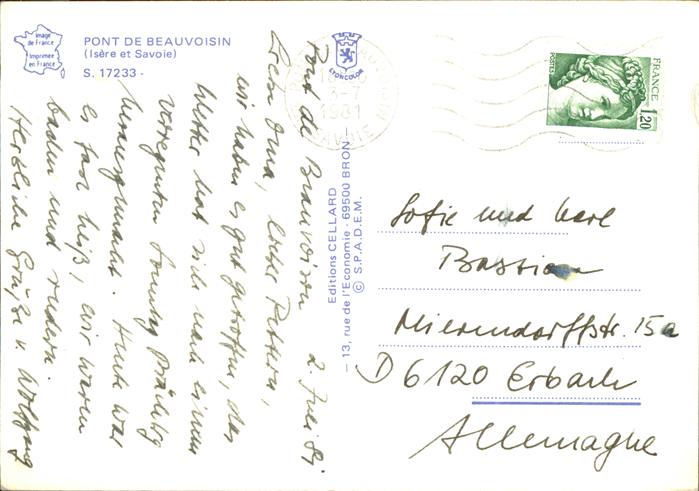 Image
de France
Imprimée
en France
PONT DE BEAUVOISIN
(Isère et Savoie)
S. 17233 -
LYONCOLOR
Editions CELLARD
- 13, rue de l'Economie - 69500 BRON -
© S.P.A.D.E.M.
1981
SAVOIE
POSTES
FRANCE
1,20
Pont de Beauvoisin 2. Juli 81
Liebe Oma, lieber
wir haben es gut getroffen, das
Wetter hat sich nach einem
verregneten Sonntag prächtig
herausgemacht. Heute war
es fast heiß, wir waren
baden und rudern.
Herzliche Grüße v. Wolfgang
Sofie und Karl
Bastian
Mierendorffstr. 15a
D 6120 Erbach
Allemagne